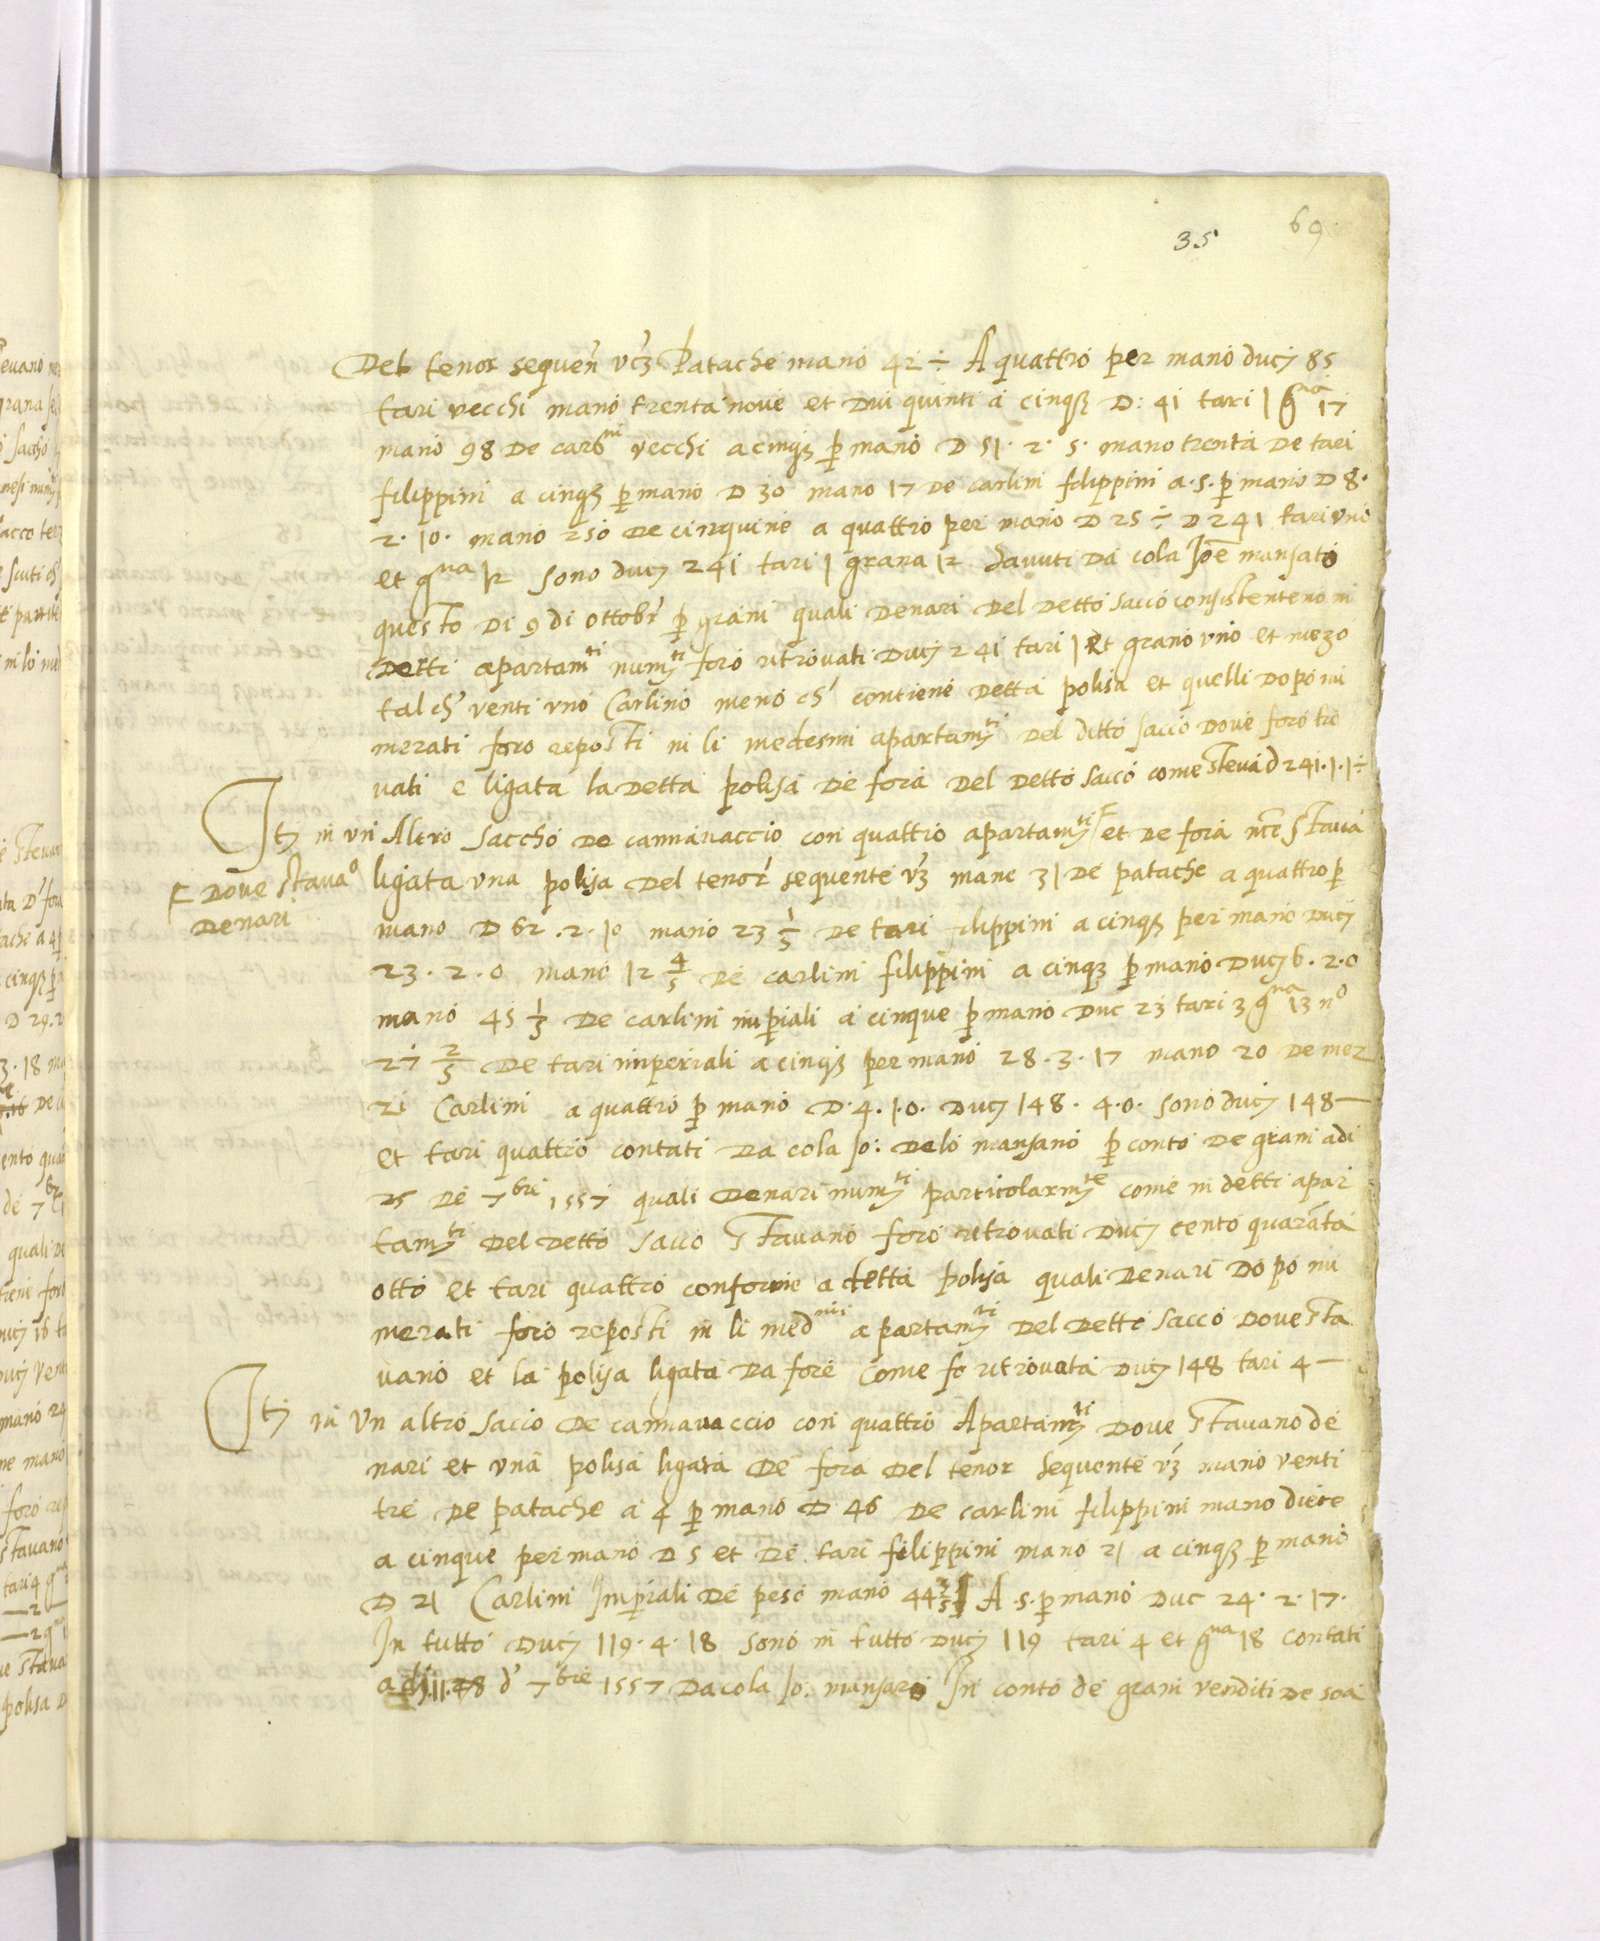 35 69
Del tenor sequen̄ vcȝ Patache mano 42 ÷ A quattro per mano ducj 85
tari vecchi mano trenta nove et dui quinti a cinqȝ D: 41 tari 1 gna 17
mano 98 de carlni vecchi a cinqȝ ꝑ mano D 51. 2. 5. mano trenta de tari
filippini a cinqȝ ꝑ mano D 30 mano 17 de carlini filippini a .5. ꝑ mano D 8.
2. 10. mano 250 de cinquine a quattro per mano D 25 ÷ D 241 tari vno
et gna 12 sono ducj 241 tari 1 grana 12 havuti da cola Joē mansato
questo di 9 di ottobr ꝑ grani quali denari del detto sacco consistenteno in
detti apartamti numti foro ritrovati ducj 241 tari 1 et grano vno et mezo
tal ch' venti vno Carlino meno ch' contiene detta polisa et quelli dopo nu
merati foro reposti in li medesmi apartamti del ditto sacco dove foro tro
vati e ligata la detta polisa de fora del detto sacco come steva d 241.1.1÷
Itȝ in vn Altro saccho de cannavaccio con quattro apartamti F et de fora nce stava
F dove stavao
denari
ligata vna polisa del tenor sequente vȝ mane 31 de patache a quattro ꝑ
mano D 62 .2. 10 mano 23 1/5 de tari filippini a cinqȝ per mano ducj
23. 2. 0 mano 12 4/5 de carlini filippini a cinqȝ ꝑ mano ducj 6. 2. 0
mano 45 1/3 de carlini imꝑiali a cinque ꝑ mano Duc 23 tari 3 gna 13 no
27 2/5 de tari imperiali a cinqȝ per mano 28. 3. 17 mano 20 de mez
zi Carlini a quattro ꝑ mano D. 4. 1. 0. Ducj 148. 4. 0. sono ducj 148—
et tari quattro contati da cola Jo: delo mansano ꝑ conto de grani adi
25 de 7bri 1557 quali denari numti particolarmte come in detti apar
tamti del detto sacco stavano foro ritrovati ducj cento quarāta
otto et tari quattro conforme a detta polisa quali denari dopo nu
merati foro reposti in li medmi apartamti del detto sacco dove sta
vano et la polisa ligata da fore come fo ritrovata ducj 148 tari 4 —
Itȝ in Vn altro sacco de cannavaccio con quattro Apartamti dove stavano de
nari et vna polisa ligata de fora del tenor sequente vȝ mano venti
tre de patache a 4 ꝑ mano D 46 de carlini filippini mano diece
a cinque per mano D 5 et de tari filippini mano 21 a cinqȝ ꝑ mano
D 21 Carlini Imꝑiali de peso mano 44 A .5. ꝑ mano Duc 24. 2. 17.
In tutto Ducj 119. 4. 18 sono in tutto Ducj 119 tari 4 et gna 18 contati
28 d' 7bre 1557 da cola Jo: mansaro In conto de grani venditi de soa